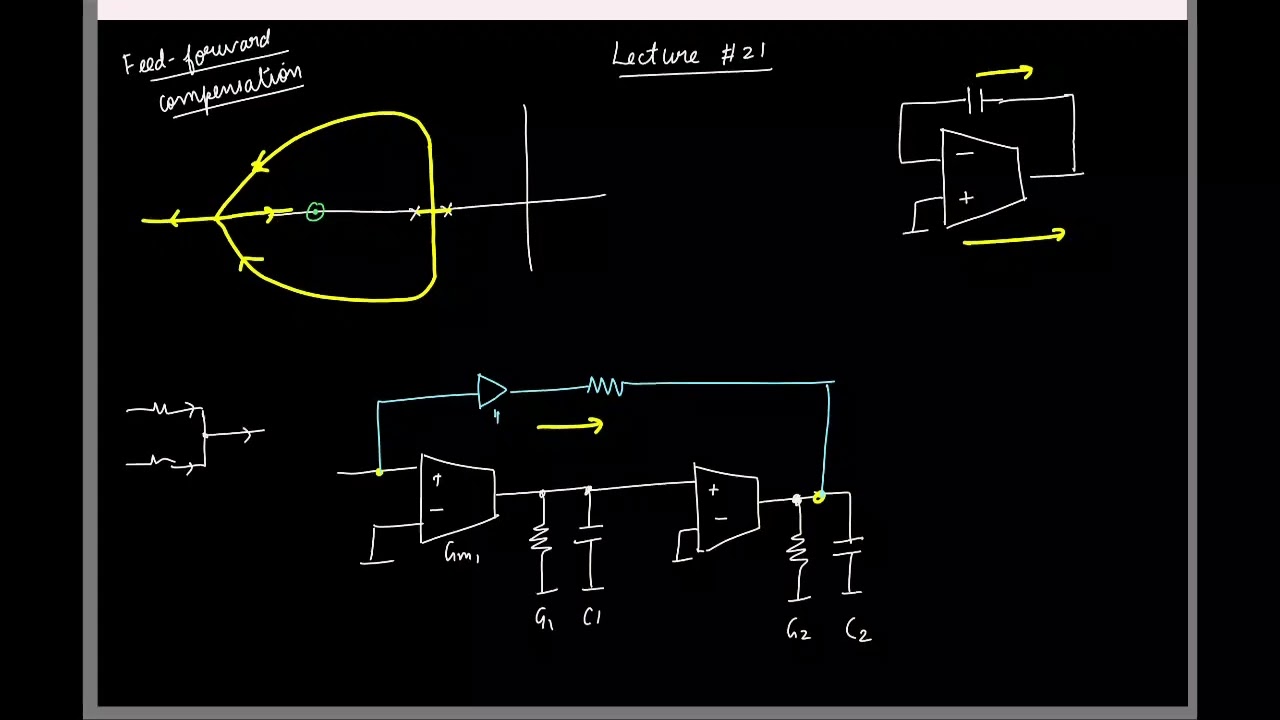 Feed-forward
compensation
Lecture #21
−
+
+
−
Gm1
+
−
G1
C1
G2
C2